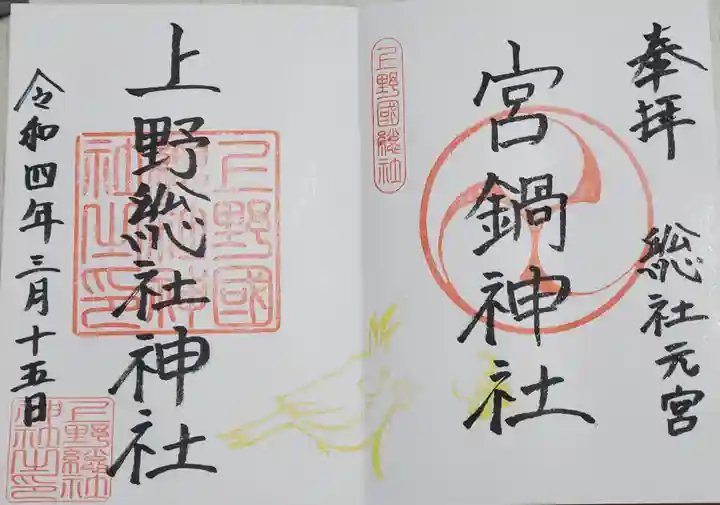 奉拝
総社元宮
上野國總社
宮鍋神社
上野総社神社
上野國總社神社之印
令和四年三月十五日
上野総社神社之印